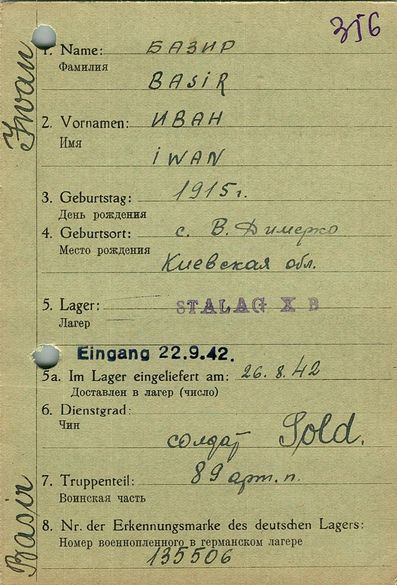 356
1. Name: БАЗИР
Фамилия
BASIR
2. Vornamen: ИВАН
Имя
IWAN
3. Geburtstag: 1915г.
День рождения
4. Geburtsort: с. В. Димерко
Место рождения
Киевская обл.
5. Lager: STALAG X B
Лагер
Eingang 22.9.42.
5a. Im Lager eingeliefert am: 26.8.42
Доставлен в лагер (число)
6. Dienstgrad:
Чин
солдат Sold.
7. Truppenteil: 89 арт.п.
Воинская часть
8. Nr. der Erkennungsmarke des deutschen Lagers:
Номер военнопленного в германском лагере
135506
Iwan
Basir